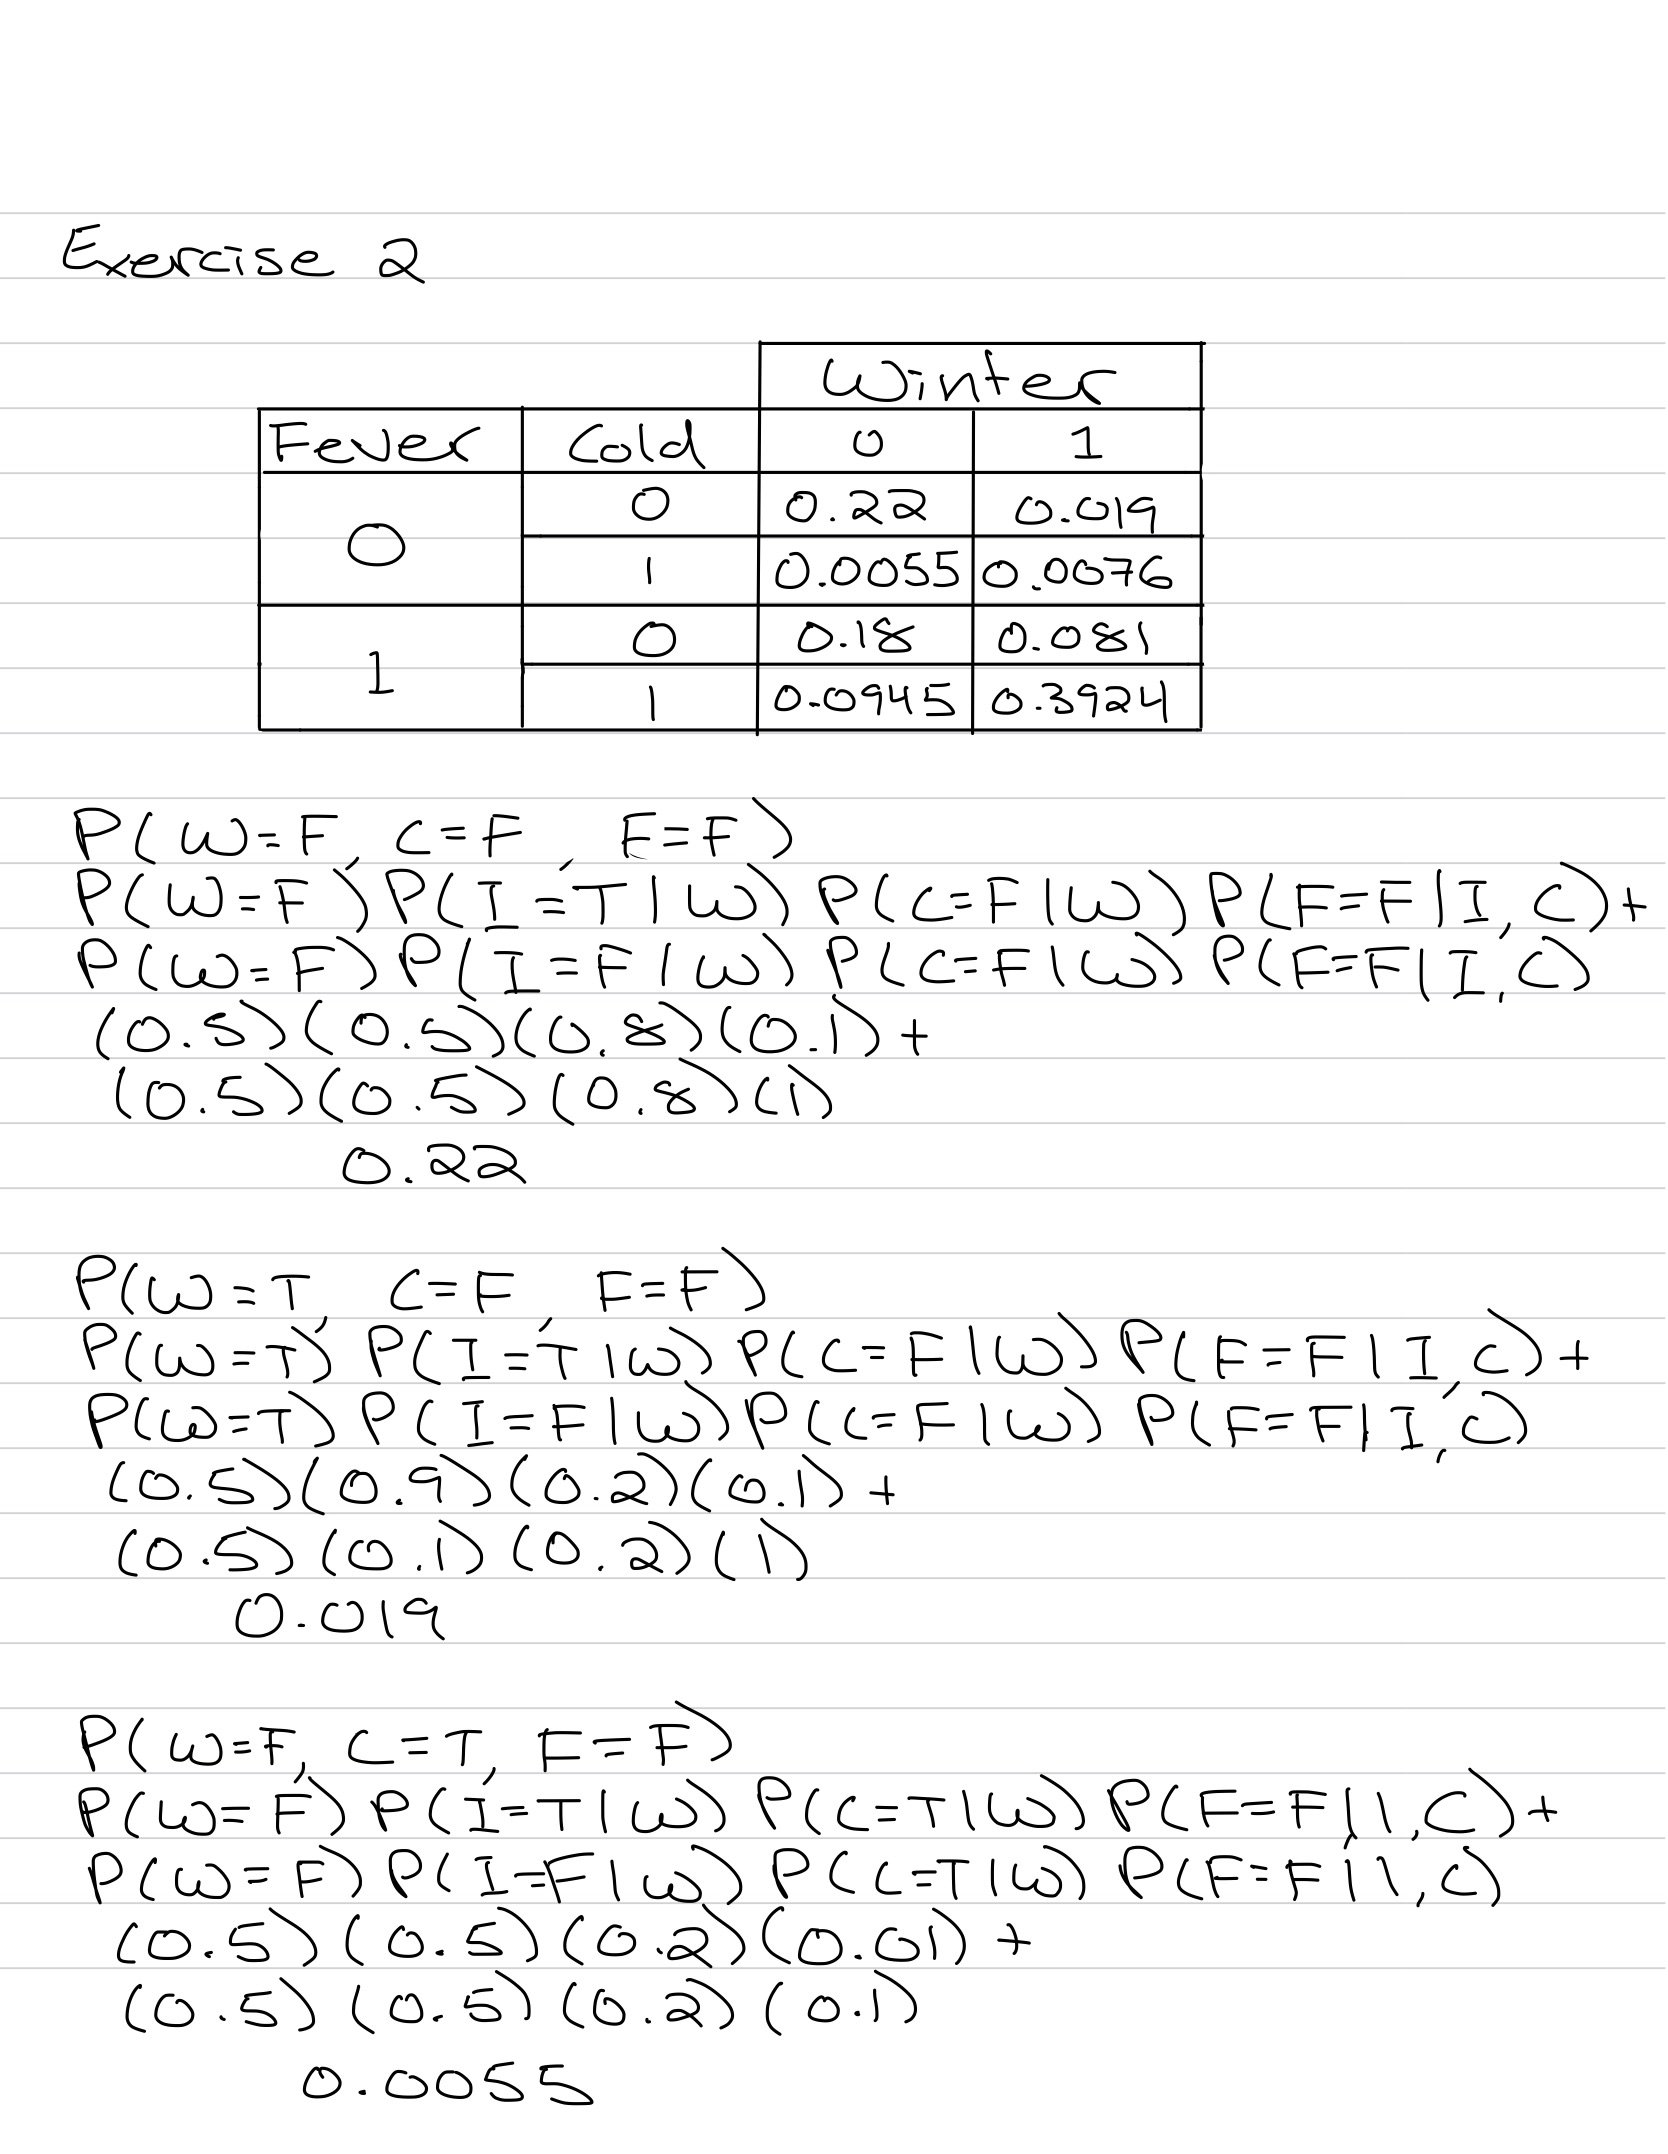 Exercise 2
Winter
Fever Cold 0 1
0 0 0.22 0.019
1 0.0055 0.0076
1 0 0.18 0.081
1 0.0945 0.3924
P(W=F, C=F, F=F)
P(W=F)P(I=T|W)P(C=F|W)P(F=F|I,C)+
P(W=F)P(I=F|W)P(C=F|W)P(F=F|I,C)
(0.5)(0.5)(0.8)(0.1)+
(0.5)(0.5)(0.8)(1)
0.22
P(W=T, C=F, F=F)
P(W=T)P(I=T|W)P(C=F|W)P(F=F|I,C)+
P(W=T)P(I=F|W)P(C=F|W)P(F=F|I,C)
(0.5)(0.9)(0.2)(0.1)+
(0.5)(0.1)(0.2)(1)
0.019
P(W=F, C=T, F=F)
P(W=F)P(I=T|W)P(C=T|W)P(F=F|I,C)+
P(W=F)P(I=F|W)P(C=T|W)P(F=F|I,C)
(0.5)(0.5)(0.2)(0.01)+
(0.5)(0.5)(0.2)(0.1)
0.0055